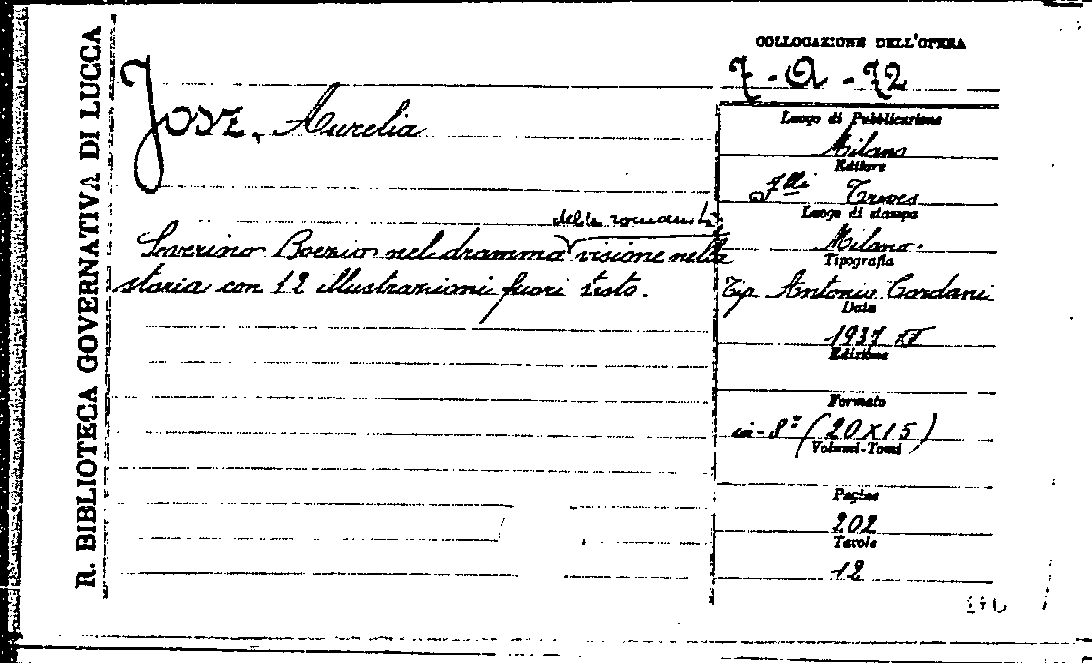 R. BIBLIOTECA GOVERNATIVA DI LUCCA
COLLOCAZIONE DELL'OPERA
7-Q-72
Josz, Aurelia
della romanità
Severino Boezio nel dramma visione nella
storia con 12 illustrazioni fuori testo.
Luogo di Pubblicazione
Milano
Editore
Flli Treves
Luogo di stampa
Milano.
Tipografia
Tip Antonio Cordani
Data
1937
Edizione
Formato
in-8° (20x15)
Volumi-Tomi
Pagine
202
Tavole
12